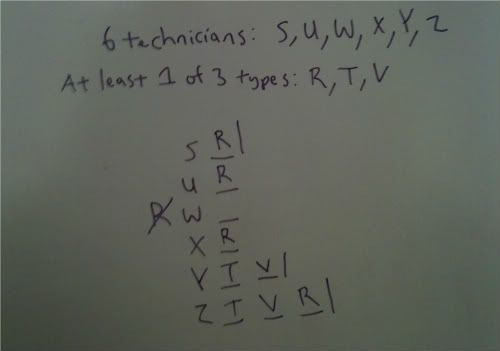 6 technicians: S, U, W, X, Y, Z
At least 1 of 3 types: R, T, V
S R |
U R
R W _
X R
Y T V |
Z T V R |